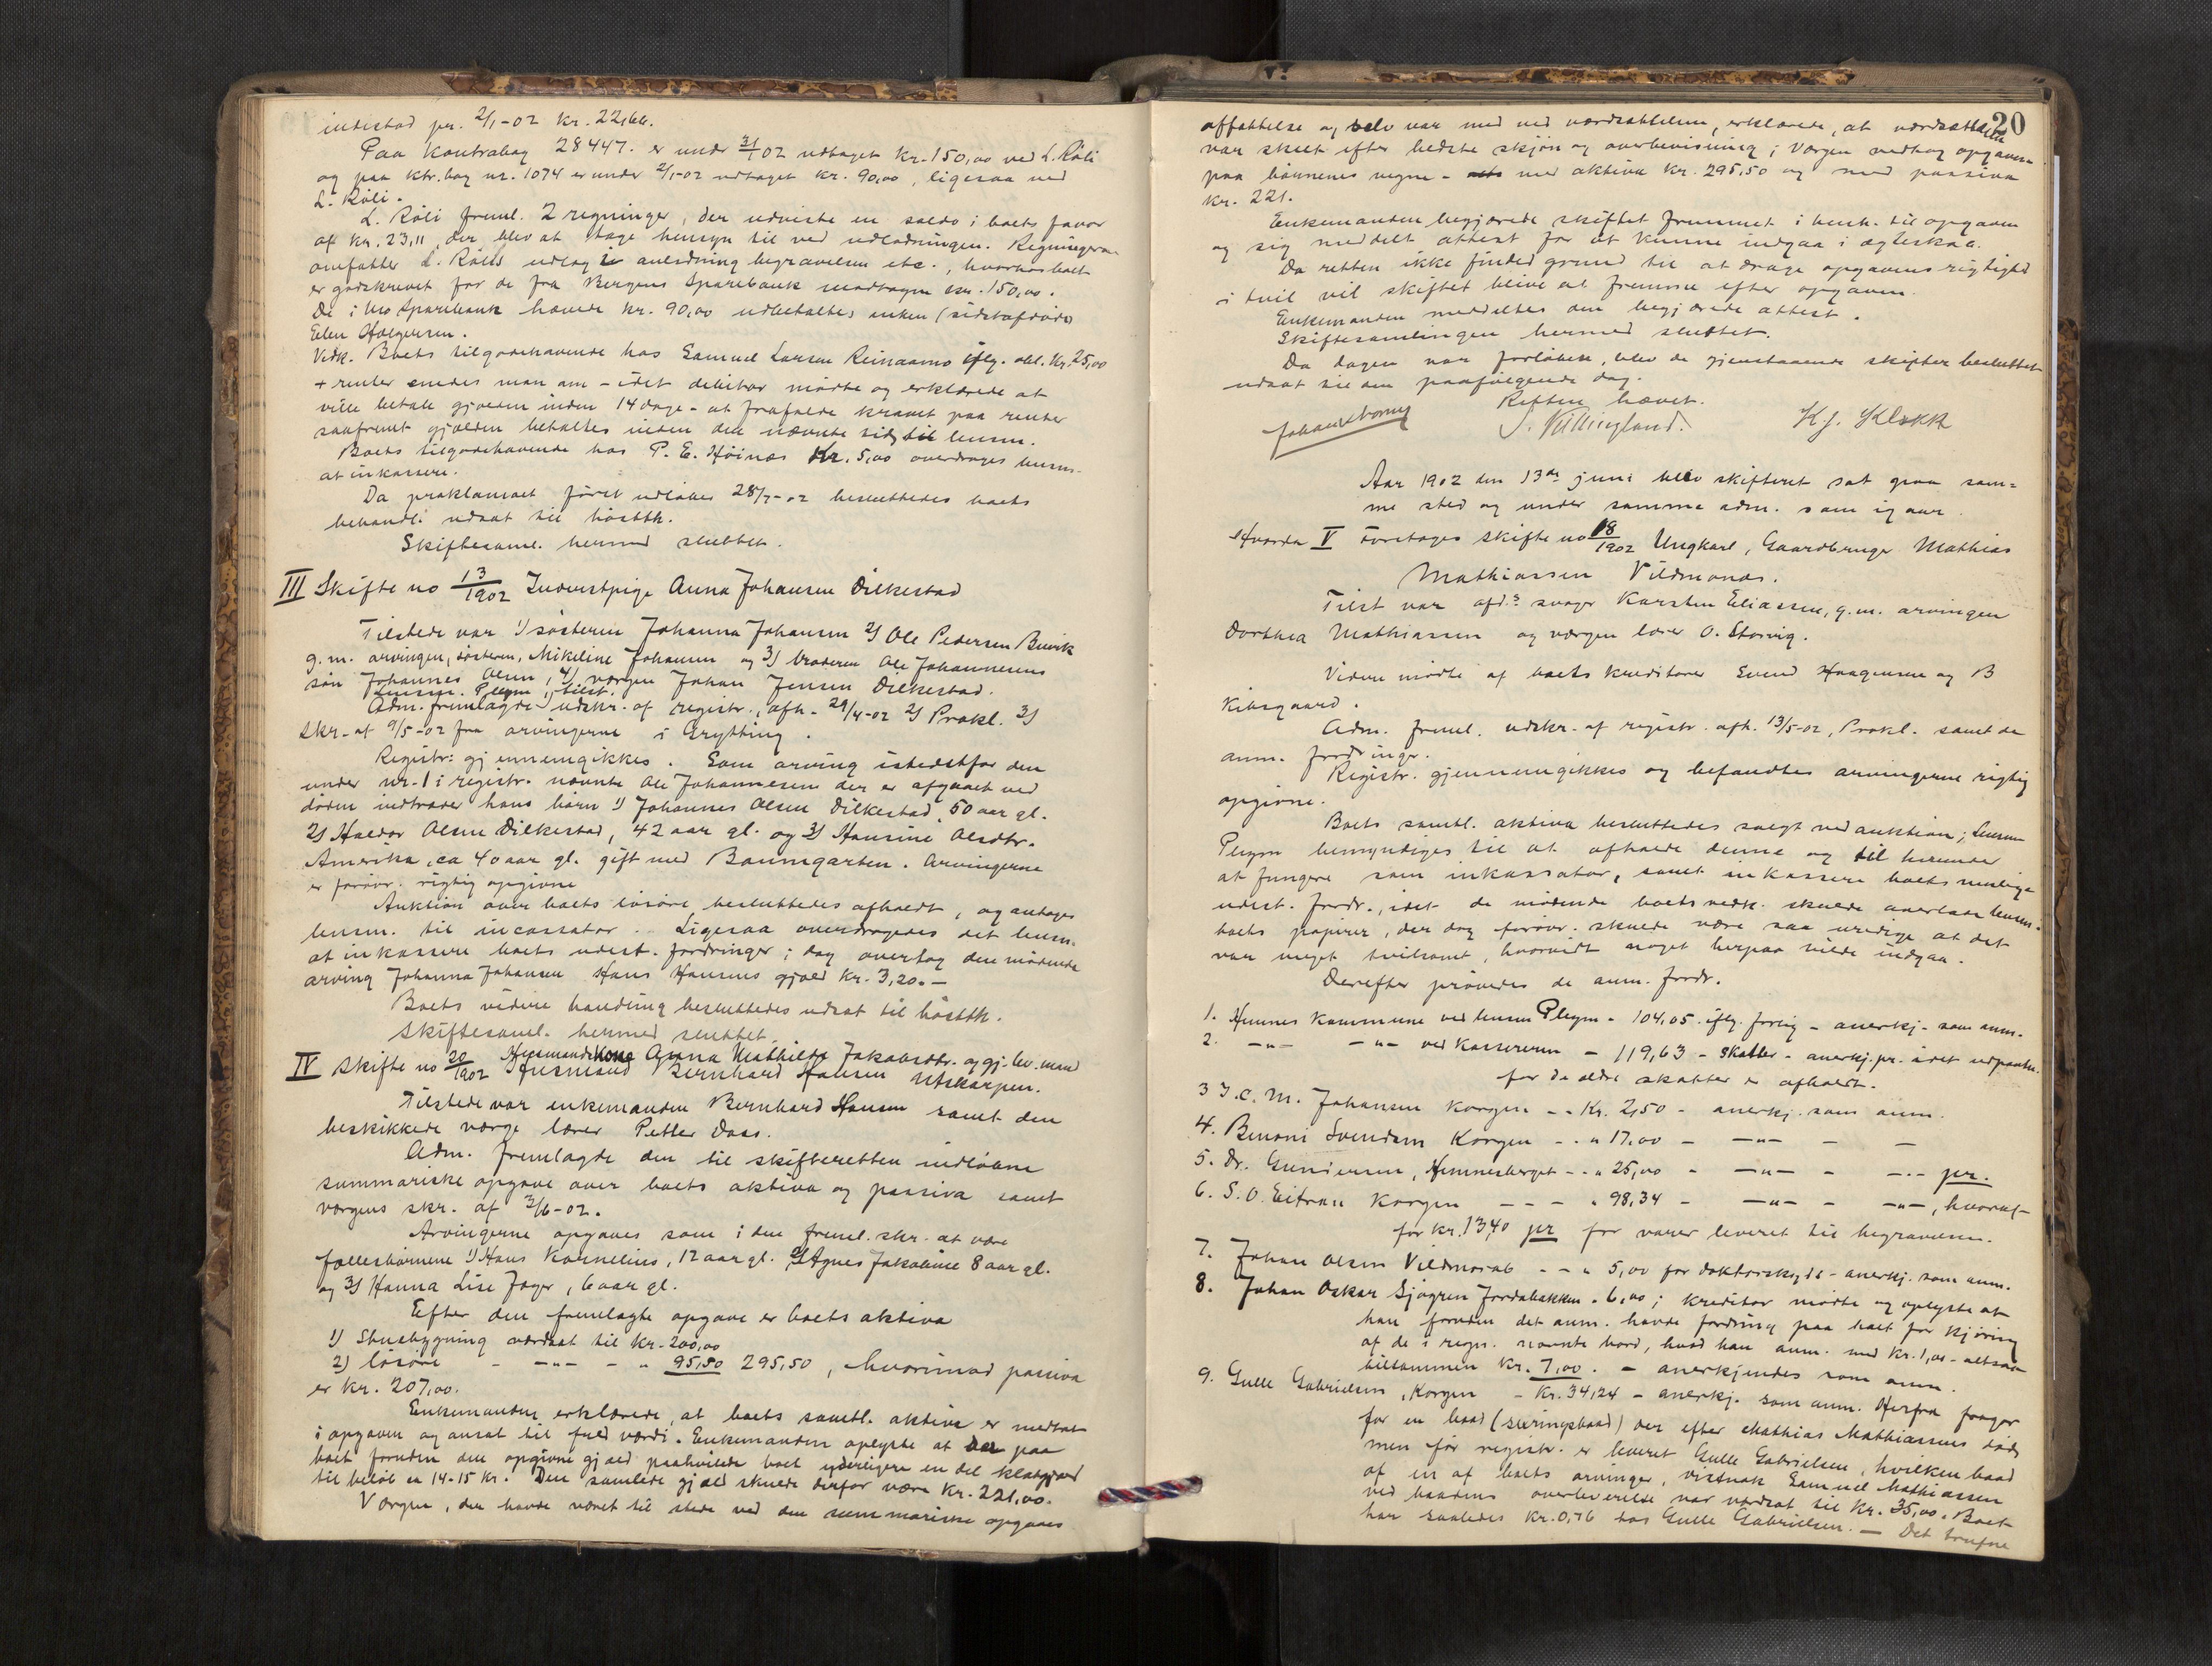 indestod pr. 2/1-02 kr. 22,66.
Paa kontrabog 28447. er under 3/1 02 udtaget kr. 150,00 ved L. Röli
og paa ktr.bog nr. 1074 er under 2/1-02 udtaget kr. 90,00, ligesaa ved
L. Röli.
L. Röli freml. 2 regninger, der udviste en saldo i boets favør
af kr. 23,11, der blev at tage hensyn til ved udlodningen. Regningerne
omfatter L. Rölis udlæg i anledning begravelsen etc., hvorhos boet
er godskrevet for de fra Bergens Sparebank modtagne kr. 150,00.
De i Mo Sparebank hævede kr. 90,00 udbetaltes enken (sidstafdøde)
Elen Holgersen.
Vedk. Boets tilgodehavende hos Samuel Larsen Reinaamo iflg. obl. Kr. 25,00
+ renter enedes man om - idet debitor mødte og erklærede at
ville betale gjælden inden 14 dage - at frafalde kravet paa renter
saafremt gjælden betaltes inden den nævnte tid til lensm.
Boets tilgodehavende hos P. E. Höinæs Kr. 5,00 overdroges lensm.
at inkassere.
Da proklamaet først udløber 28/7-02 besluttedes boets
behandl. udsat til høstth.
Skiftesaml. hermed sluttet.
III Skifte no 13/1902 Inderstpige Anna Johansen Dilkestad
Tilstede var 1) søsteren Johanna Johansen 2) Ole Pedersen Buvik
g.m. arvingen, søsteren, Mikeline Johansen og 3) broderen Ole Johannesens
søn Johannes Olsen, 4) værgen Johan Jensen Dilkestad.
Lensm. Pleym tilst.
Adm. fremlagde 1) udskr. af registr., afh. 29/4-02 2) Prokl. 3)
skr. af 9/5-02 fra arvingerne i Grytting.
Registr: gjennemgikkes. Som arving istedetfor den
under nr. 1 i registr. nævnte Ole Johannesen der er afgaaet ved
døden indtræder hans børn 1) Johannes Olsen Dilkestad, 50 aar gl.
2) Haldor Olsen Dilkestad, 42 aar gl. og 3) Hansine Olsdtr.
Amerika, ca 40 aar gl. gift med Baumgarten. Arvingerne
er forøvr. rigtig opgivne
Auktion over boets løsøre besluttedes afholdt, og antages
lensm. til incassator. Ligesaa overdragedes det lensm.
at inkassere boets udest. fordringer; dog overtog den mødende
arving Johanna Johansen Hans Hansens gjæld kr. 3,20.-
Boets videre handling besluttedes udsat til høstth.
Skiftesaml. hermed sluttet.
IV Skifte no 20/1902 Husmandskone Anna Mathilde Jakobsdtr. og gj. lev. mand
Husmand Bernhard Hansen Utskarpen.
Tilstede var enkemanden Bernhard Hansen samt den
beskikkede værge lærer Petter Dass.
Adm. fremlagde den til skifteretten indløbne
summariske opgave over boets aktiva og passiva samt
værgens skr. af 3/6-02.
Arvingerne opgaves som i den freml. skr. at være
fællesbørnene 1) Hans Kornelius, 12 aar gl. 2) Agnes Jakobine 8 aar gl.
og 3) Hanna Lise Jager, 6 aar gl.
Efter den fremlagte opgave er boets aktiva
1) Stuebygning værdsat til kr. 200,00
2) løsøre - -"- - " 95,50 295,50, hvorimod passiva
er kr. 207,00.
Enkemanden erklærede, at boets samtl. aktiva er medtat
i opgaven og ansat til fuld værdi. Enkemanden oplyste at der paa
boet foruden den opgivne gjæld paahvilede boet yderligere en del klatgjæld
til beløb ca 14-15 kr. Den samlede gjæld skulde derfor være kr. 221,00.
Værgen, der havde været til stede ved den summariske opgaves
20
affattelse og selv var med ved værdsættelsen, erklærede, at værdsættelsen
var skeet efter bedste skjøn og overbevisning; værgen vedtog opgaven
paa børnenes vegne - med aktiva kr. 295,50 og med passiva
kr. 221.
Enkemanden begjærede skiftet fremmet i henh. til opgaven
og sig meddelt attest for at kunne indgaa i ægteskab.
Da retten ikke finder grund til at drage opgavens rigtighed
i tvil vil skiftet blive at fremme efter opgaven.
Enkemanden meddeltes den begjærede attest.
Skiftesamlingen hermed sluttet.
Da dagen var forløben, blev de gjenstaaende skifter besluttet
udsat til den paafølgende dag.
Retten hævet.
Kj. Klækk
Aar 1902 den 13de juni blev skifteret sat paa sam=
me sted og under samme adm. som igaar.
Hvorda V Foretoges skifte no 18/1902 Ungkarl, Gaardbruger Mathias
Mathiassen Vildmonæs.
Tilst var afd.s svoger Karsten Eliassen, g.m. arvingen
Dorthea Mathiassen og værgen lærer O. Storvig.
Videre mødte af boets kreditorer Svend Haagensen og B
Kibsgaard.
Adm. freml. udskr. af registr. afh. 13/5-02, Prokl. samt de
anm. fordringer.
Registr. gjennemgikkes og befandtes arvingerne rigtig
opgivne.
Boets samtl. aktiva besluttedes solgt ved auktion; lensm
Pleym bemyndiges til at afholde denne og til herunder
at fungere som inkassator, samt inkassere boets mulige
udest. fordr., idet de mødende boets vedk. skulde overlade lensm.
boets papirer, der dog forøvr. skulde være saa uredige at det
var meget tvilsomt, hvorvidt noget herpaa vilde indgaa.
Derefter prøvedes de anm. fordr.
1. Hemnes Kommune ved lensm Pleym - 104,05 iflg. forlig - anerkj. som anm.
2. -"- -"- ved kassereren - 119,63 - skatter - anerkj. pr. idet udpantn.
for de ældre skatter er afholdt.
3 J.C.M. Johansen Korgen - - Kr. 2,50 - anerkj. som anm.
4. Benoni Svendsen Korgen - - " 17,00 - -"- - -
5. Dr. Gundersen, Hemnesberget - - " 25,00 - -"- - -"- pr.
6. S.O. Eitran Korgen - - - " 98,34 - -"- - -"-, hvoraf
for kr. 13,40 pr for varer leveret til begravelsen.
7. Johan Olsen Vildmorab - - " 5,00 for doktorskyds - anerkj. som anm.
8. Johan Oskar Sjøgren Jordabakken - 6,00; kreditor mødte og oplyste at
han foruden det anm. havde fordring paa boet for kjøring
af de i regn. nævnte bord, hvad han anm. med kr. 1,00 - altsaa
tilsammen kr. 7,00. - anerkjendes som anm.
9. Gulle Gabrielsen, Korgen - Kr. 34,24 - anerkj. som anm. Herfra fragaar
for en baad (sexringsbaad) der efter Mathias Mathiassens død,
men før registr. er leveret Gulle Gabrielsen, hvilken baad
af en af boets arvinger, vistnok Samuel Mathiassen
ved baadens overleverelse var værdsat til kr. 35,00. Boet
har saaledes kr. 0,76 hos Gulle Gabrielsen. - Det trufne